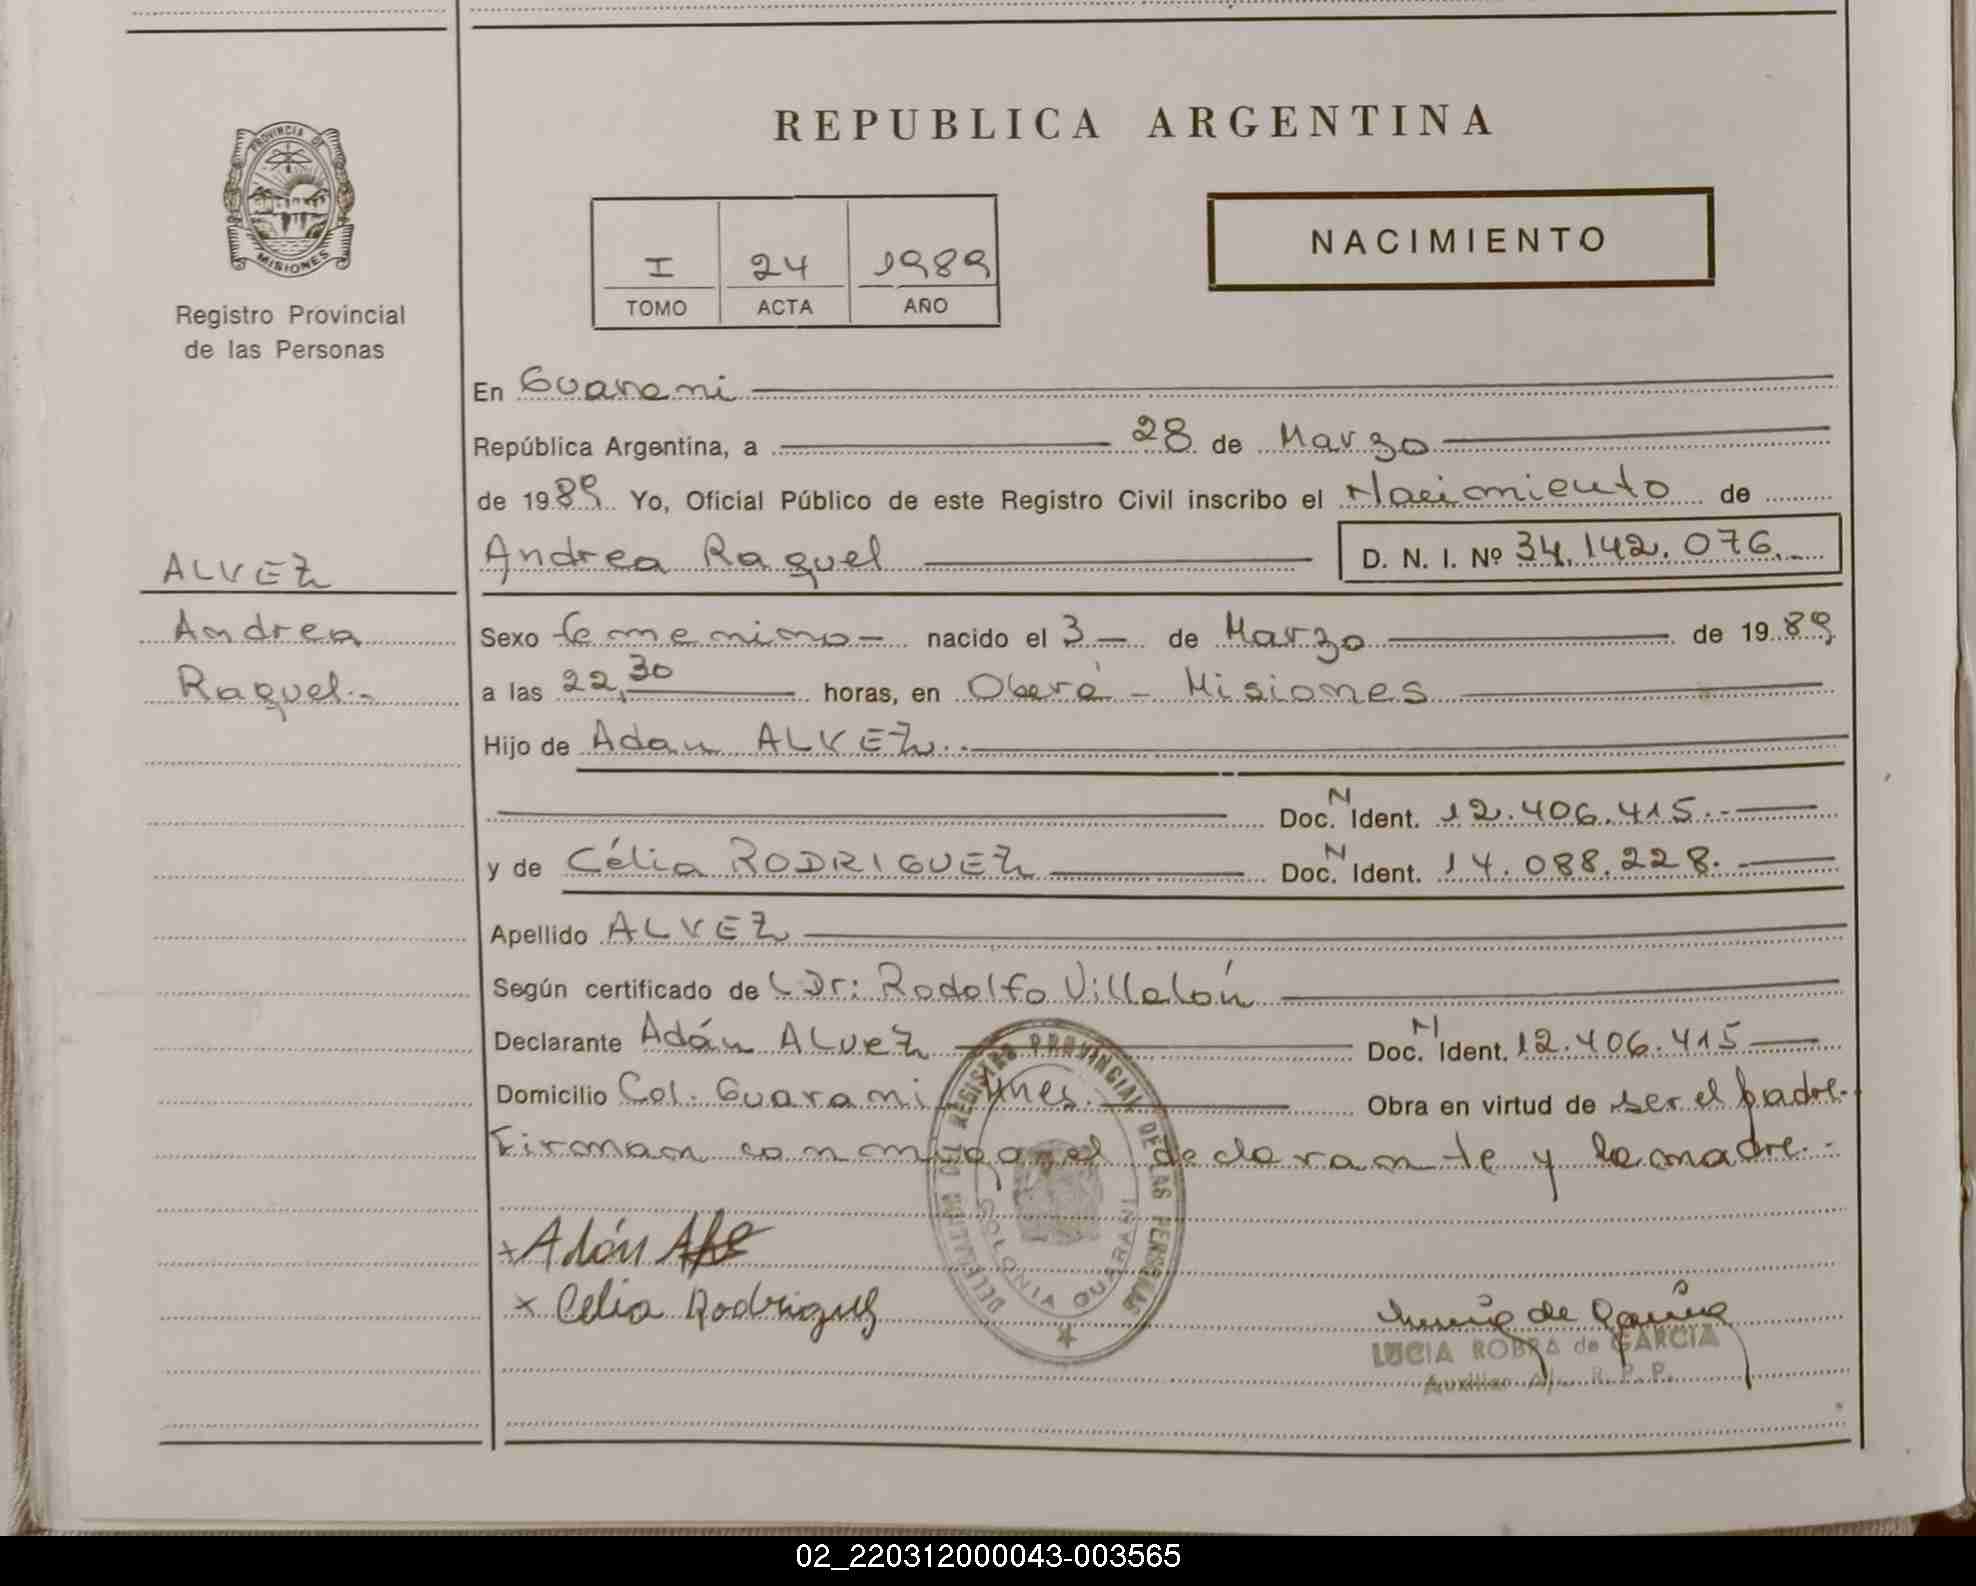 REPUBLICA ARGENTINA
PROVINCIA DE
MISIONES
Registro Provincial
de las Personas
I 24 1989
TOMO ACTA AÑO
NACIMIENTO
En Guarani
República Argentina, a 28 de Marzo
de 1989 Yo, Oficial Público de este Registro Civil inscribo el Nacimiento de
ALVEZ
Andrea
Raquel.-
Andrea Raquel D. N. I. Nº 34.142.076.-
Sexo femenino - nacido el 3 - de Marzo de 1989
a las 22,30 horas, en Oberá - Misiones
Hijo de Adan ALVEZ.-
Doc. N Ident. 12.406.415.-
y de Célia RODRIGUEZ Doc. N Ident. 14.088.228.
Apellido ALVEZ
Según certificado de Dr: Rodolfo Villalón
Declarante Adán ALVEZ Doc. N Ident. 12.406.415
Domicilio Col. Guarani Mnes. Obra en virtud de ser el padre.-
Firman conmigo el declarante y la madre.-
DELEGACION DEL REGISTRO PROVINCIAL DE LAS PERSONAS
COLONIA GUARANI
x Adán
x Celia Rodriguez
de Garcia
LUCIA ROBRA de GARCIA
Auxiliar R. P. P.
02_220312000043-003565